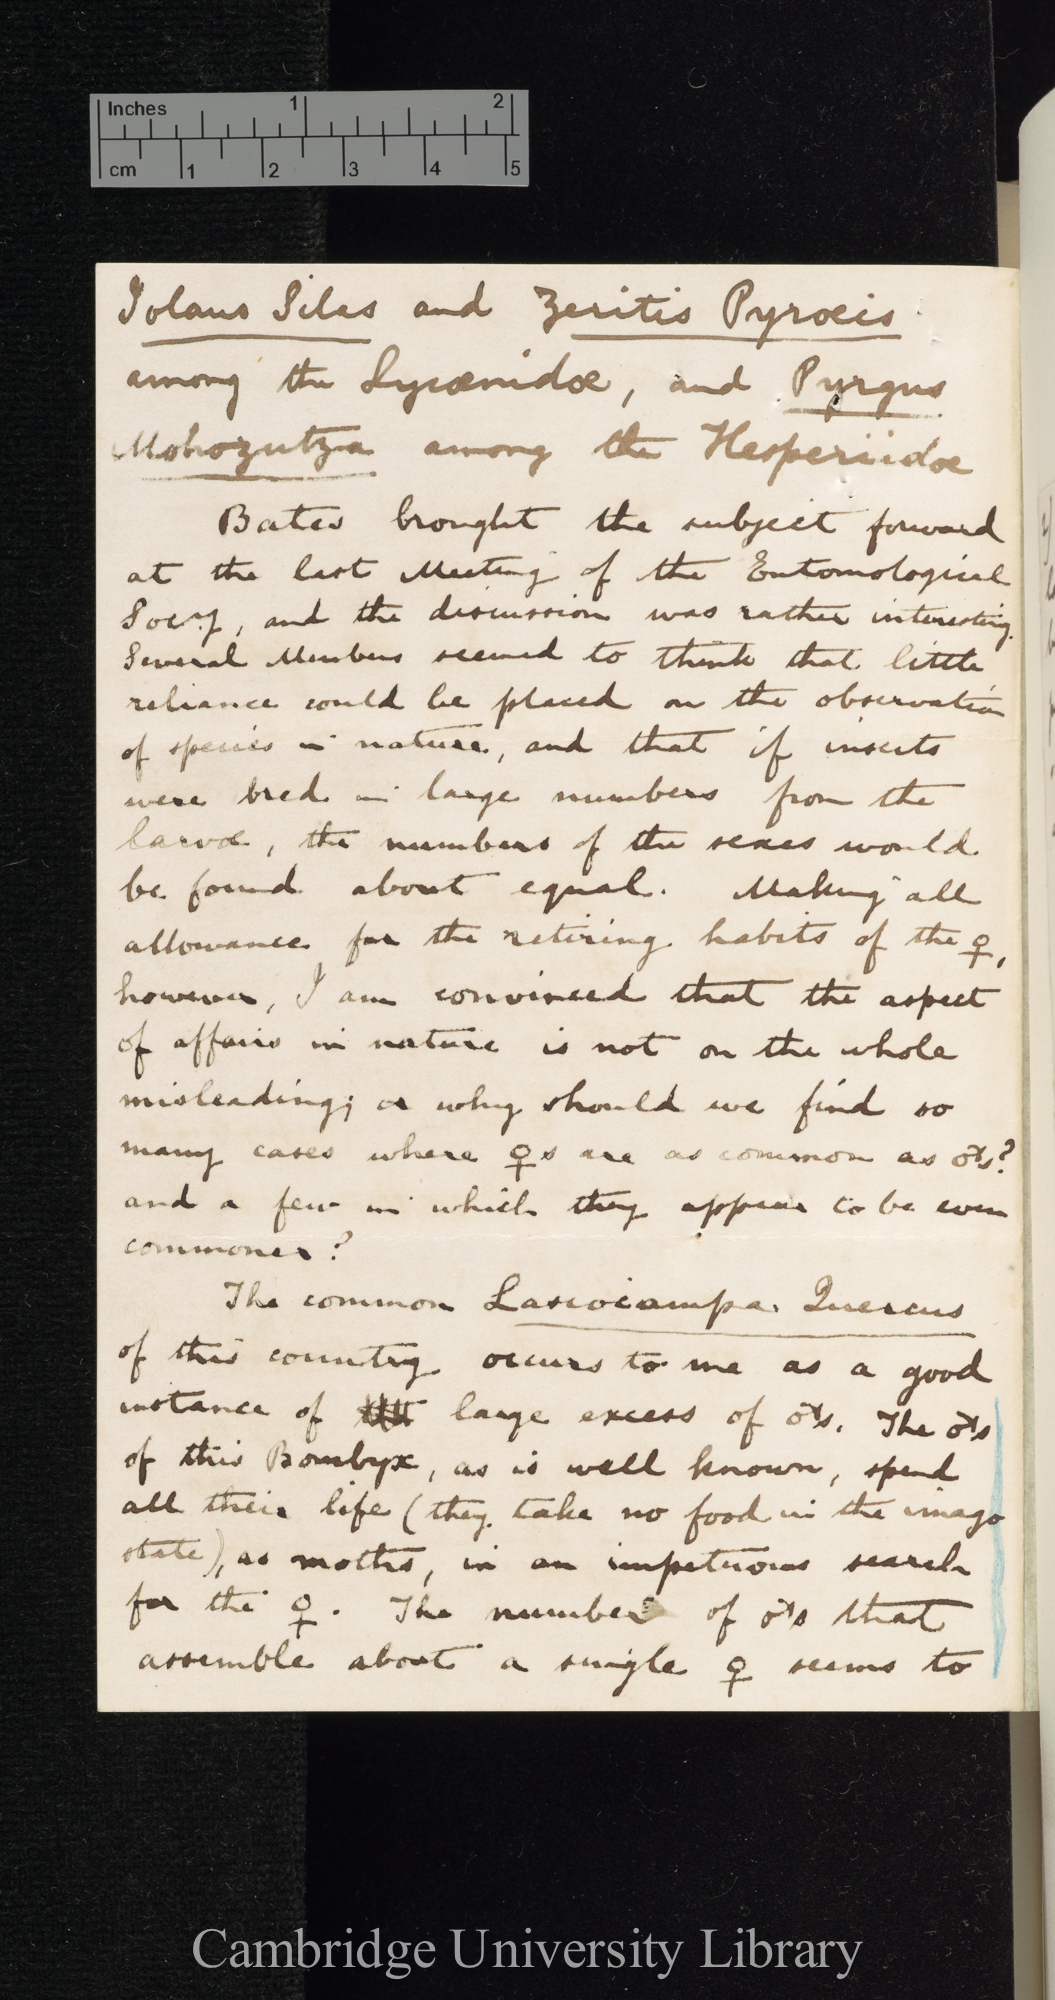 Inches 1 2
cm 1 2 3 4 5
Iolaus Silas and Zeritis Pyroeis
among the Lycænidæ, and Pyrgus
Mohozutza among the Hesperiidæ
Bates brought the subject forward
at the last Meeting of the Entomological
Socy, and the discussion was rather interesting.
Several Members seemed to think that little
reliance could be placed on the observation
of species in nature, and that if insects
were bred in large numbers from the
larvæ, the numbers of the sexes would
be found about equal. Making all
allowance for the retiring habits of the ♀,
however, I am convinced that the aspect
of affairs in nature is not on the whole
misleading; or why should we find so
many cases where ♀s are as common as ♂s?
and a few in which they appear to be even
commoner?
The common Lasiocampa Quercus
of this country occurs to me as a good
instance of large excess of ♂s. The ♂s
of this Bombyx, as is well known, spend
all their life (they take no food in the imago
state), as moths, in an impetuous search
for the ♀. The number of ♂s that
assemble about a single ♀ seems to
Cambridge University Library